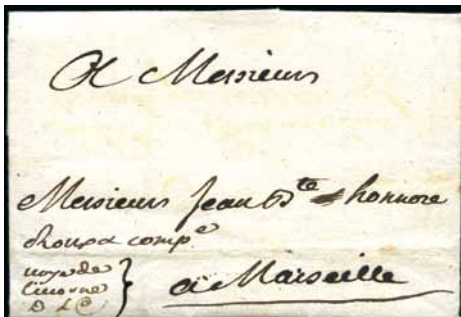 A Messieurs
Messieurs Jean Bte honnore
Roux & compe
voye de
Livorne
D L C
a Marseille